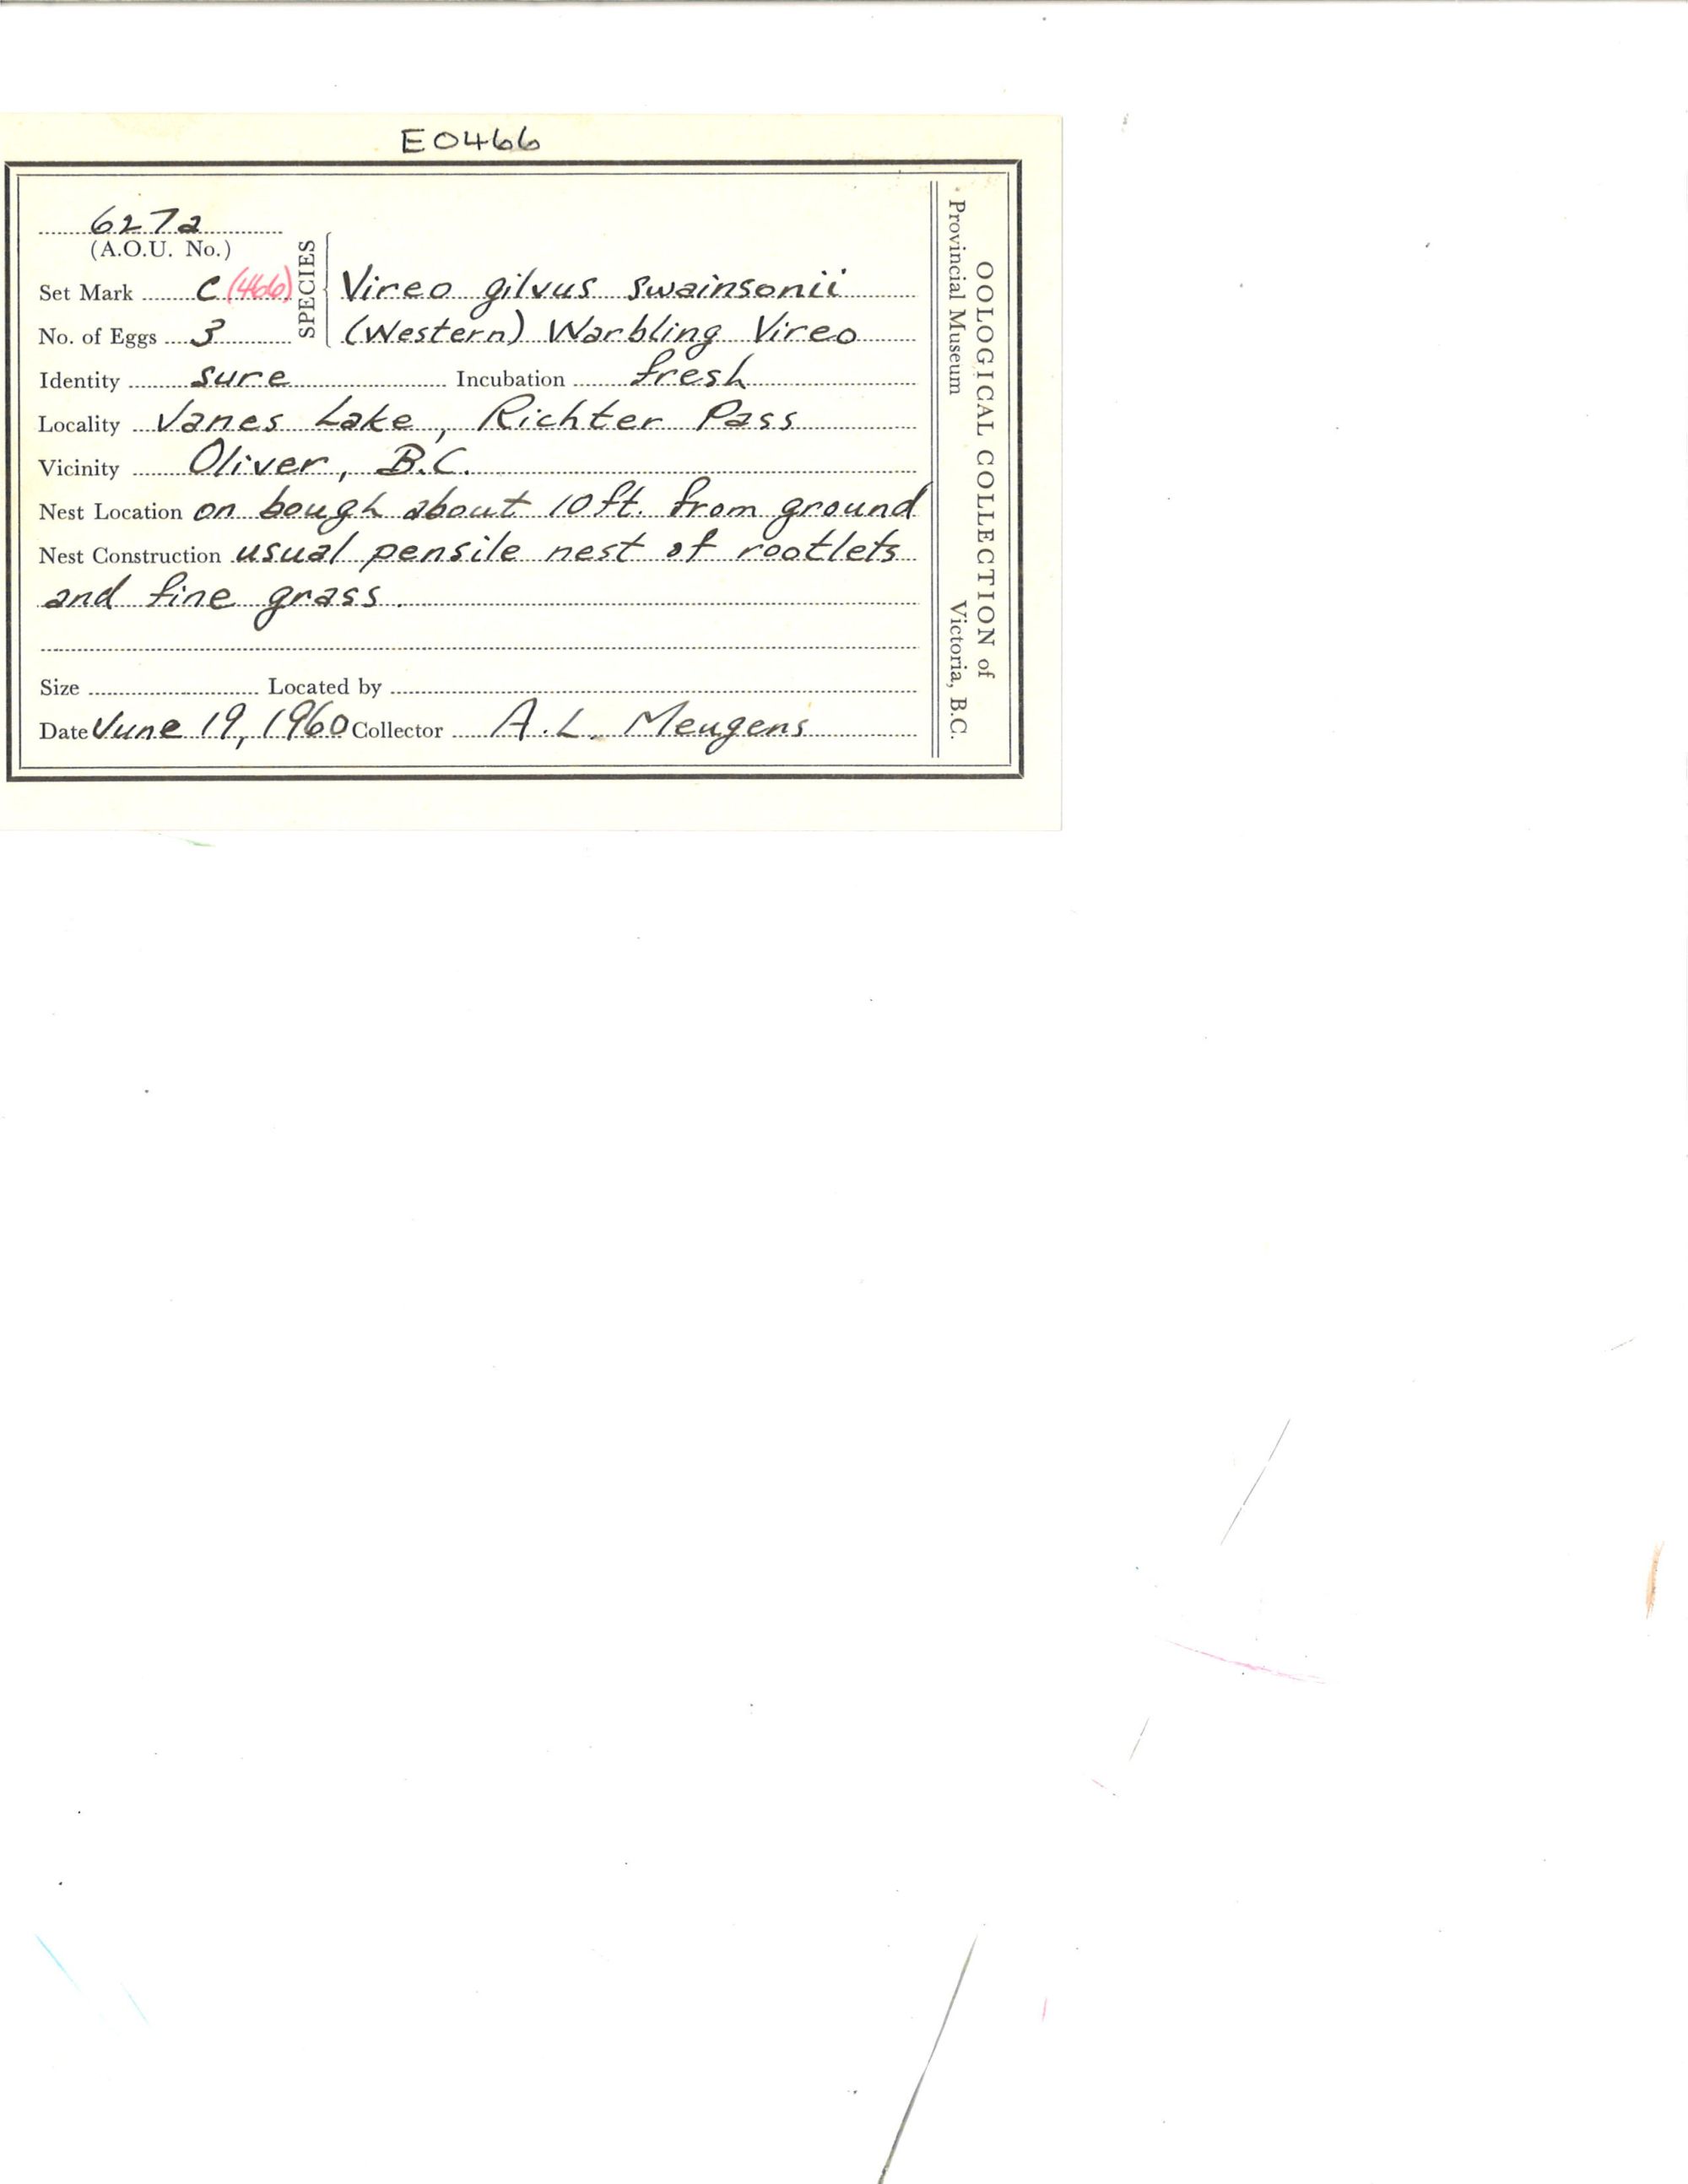 E0466
627a
(A.O.U. No.)
Set Mark C (466)
SPECIES
Vireo gilvus swainsonii
No. of Eggs 3
(Western) Warbling Vireo
Identity sure Incubation fresh
Locality Janes Lake, Richter Pass
Vicinity Oliver, B.C.
Nest Location on bough about 10 ft. from ground
Nest Construction usual pensile nest of rootlets
and fine grass.
Size Located by
Date June 19, 1960 Collector A.L. Meugens
OOLOGICAL COLLECTION of
Provincial Museum Victoria, B.C.